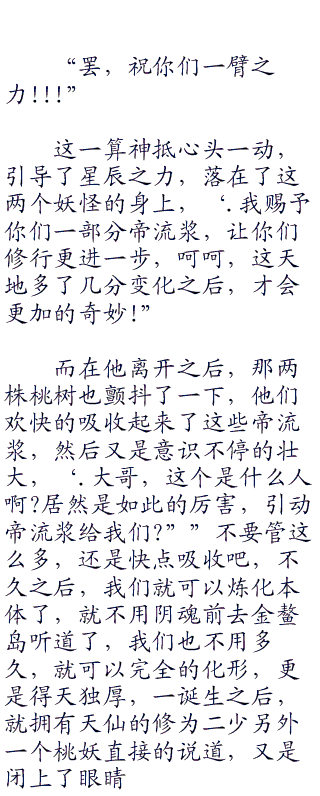 “罢，祝你们一臂之
力!!!”
这一算神抵心头一动，
引导了星辰之力，落在了这
两个妖怪的身上，‘.我赐予
你们一部分帝流浆，让你们
修行更进一步，呵呵，这天
地多了几分变化之后，才会
更加的奇妙!”
而在他离开之后，那两
株桃树也颤抖了一下，他们
欢快的吸收起来了这些帝流
浆，然后又是意识不停的壮
大，‘.大哥，这个是什么人
啊?居然是如此的厉害，引动
帝流浆给我们?””不要管这
么多，还是快点吸收吧，不
久之后，我们就可以炼化本
体了，就不用阴魂前去金鳌
岛听道了，我们也不用多
久，就可以完全的化形，更
是得天独厚，一诞生之后，
就拥有天仙的修为二少另外
一个桃妖直接的说道，又是
闭上了眼睛